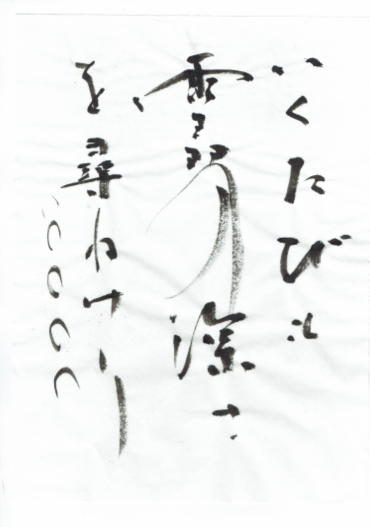 いくたびも
雪の深さ
を尋ねけり